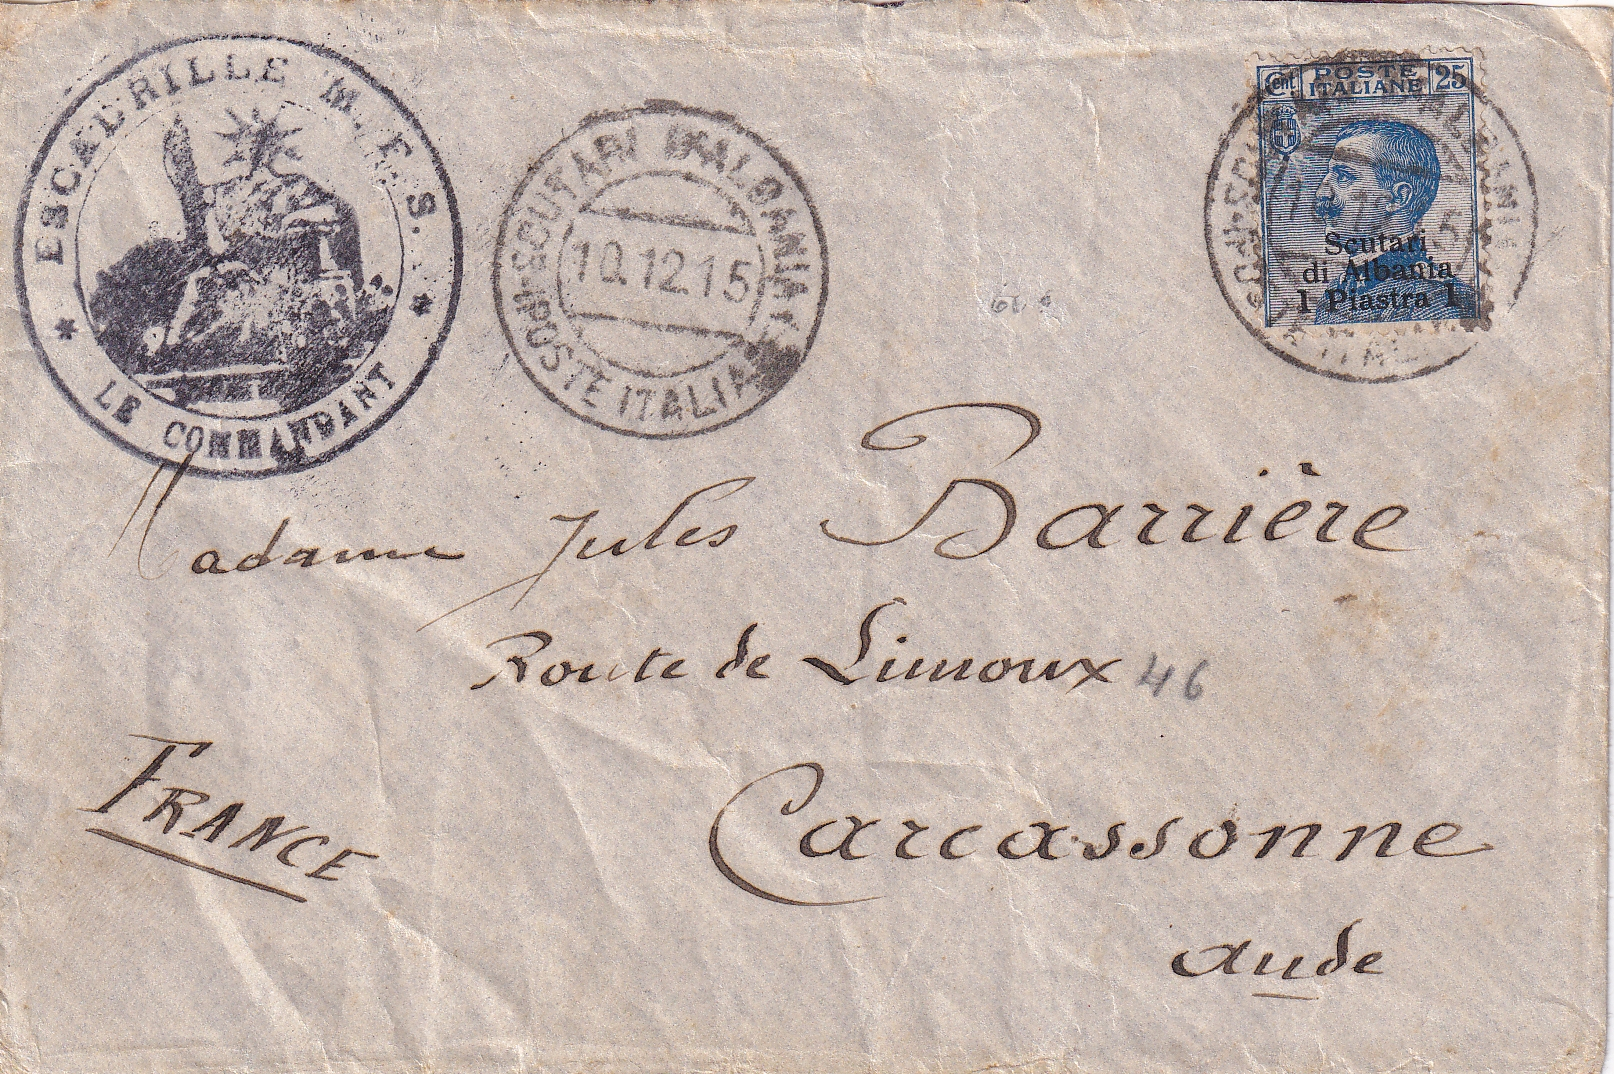 ESCADRILLE M.F.S.
* LE COMMANDANT *
SCUTARI D'ALBANIA
10.12.15
POSTE ITALIANE
Cent. POSTE ITALIANE 25
Scutari
di Albania
1 Piastra 1
Madame Jules Barrière
Route de Limoux 46
FRANCE
Carcassonne
Aude